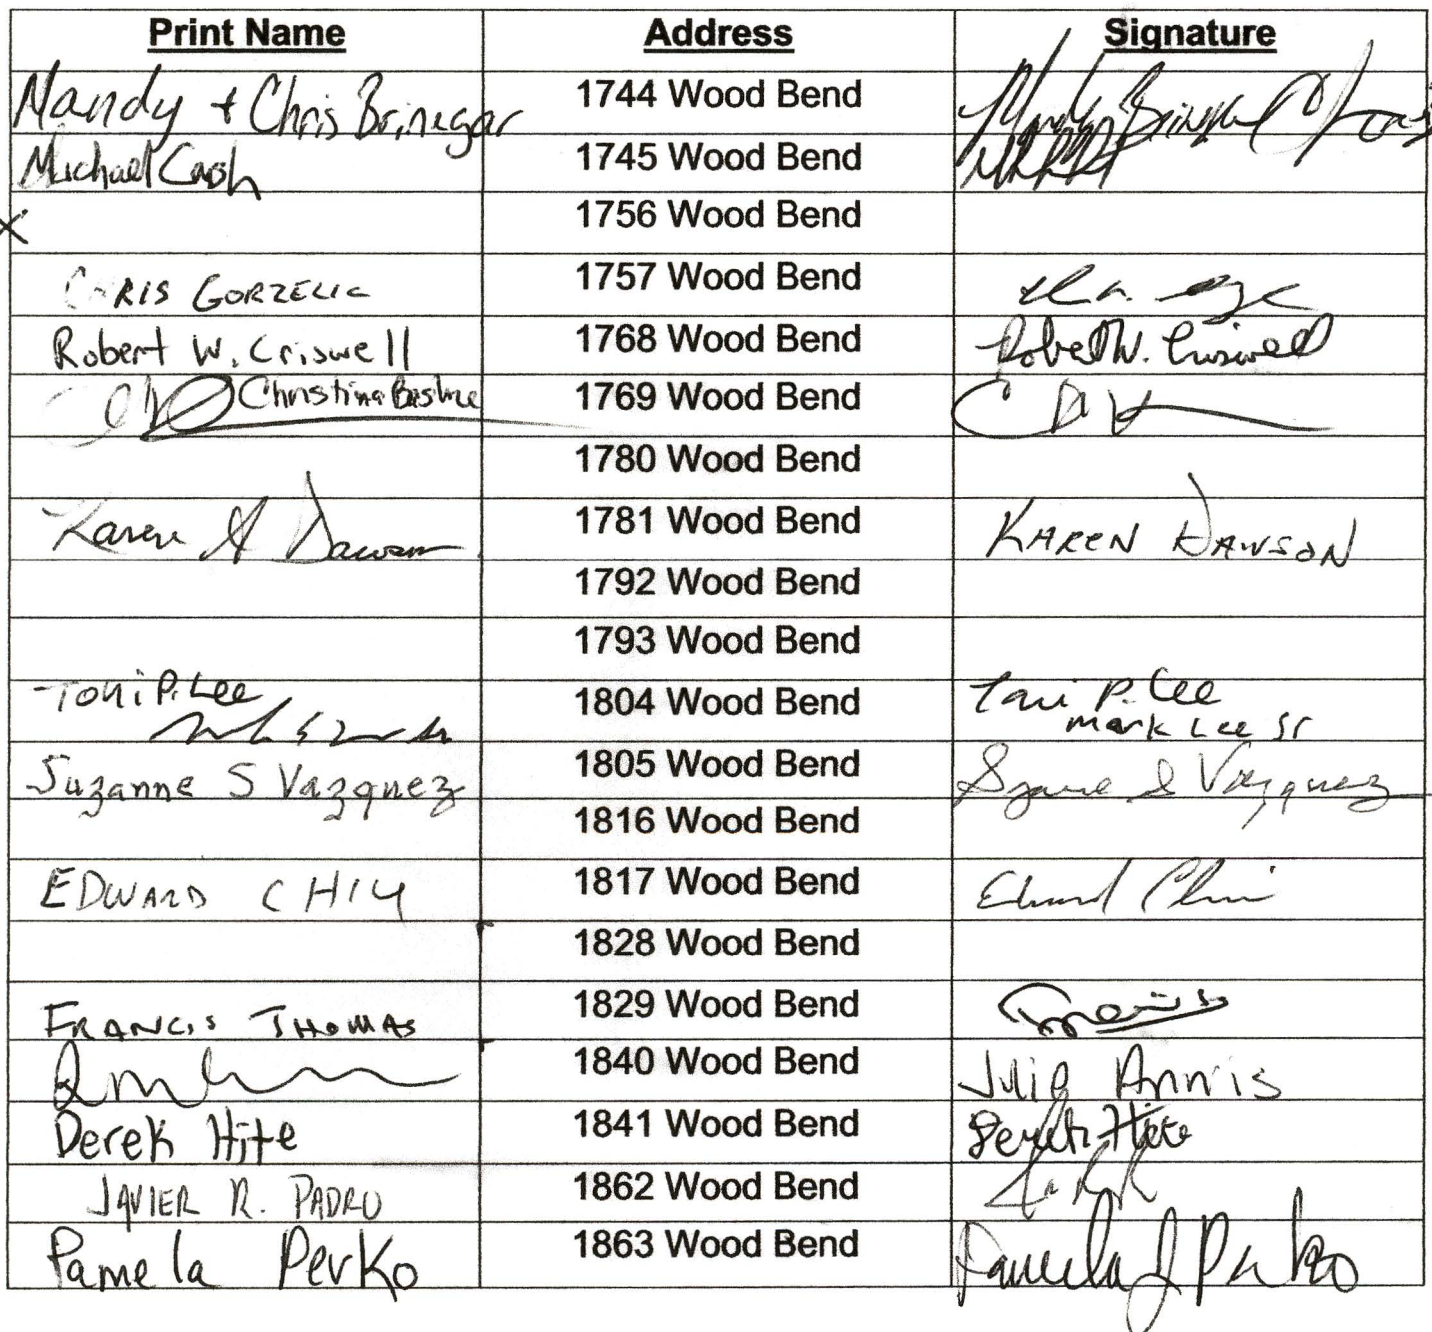 Print Name Address Signature
Mandy + Chris Brinegar 1744 Wood Bend Brinegar Chris
Michael Cash 1745 Wood Bend
X 1756 Wood Bend
CHRIS GORZELIC 1757 Wood Bend
Robert W. Criswell 1768 Wood Bend Robert W. Criswell
Christina 1769 Wood Bend
1780 Wood Bend
Karen A Dawson 1781 Wood Bend KAREN DAWSON
1792 Wood Bend
1793 Wood Bend
Toni P. Lee 1804 Wood Bend Toni P. Lee
Mark Lee Sr
Suzanne S Vazquez 1805 Wood Bend Suzanne S Vazquez
1816 Wood Bend
EDWARD CHIU 1817 Wood Bend Edward Chiu
1828 Wood Bend
FRANCIS THOMAS 1829 Wood Bend
1840 Wood Bend Julie Annis
Derek Hite 1841 Wood Bend Derek Hite
JAVIER R. PADRO 1862 Wood Bend
Pamela Perko 1863 Wood Bend Pamela J Perko